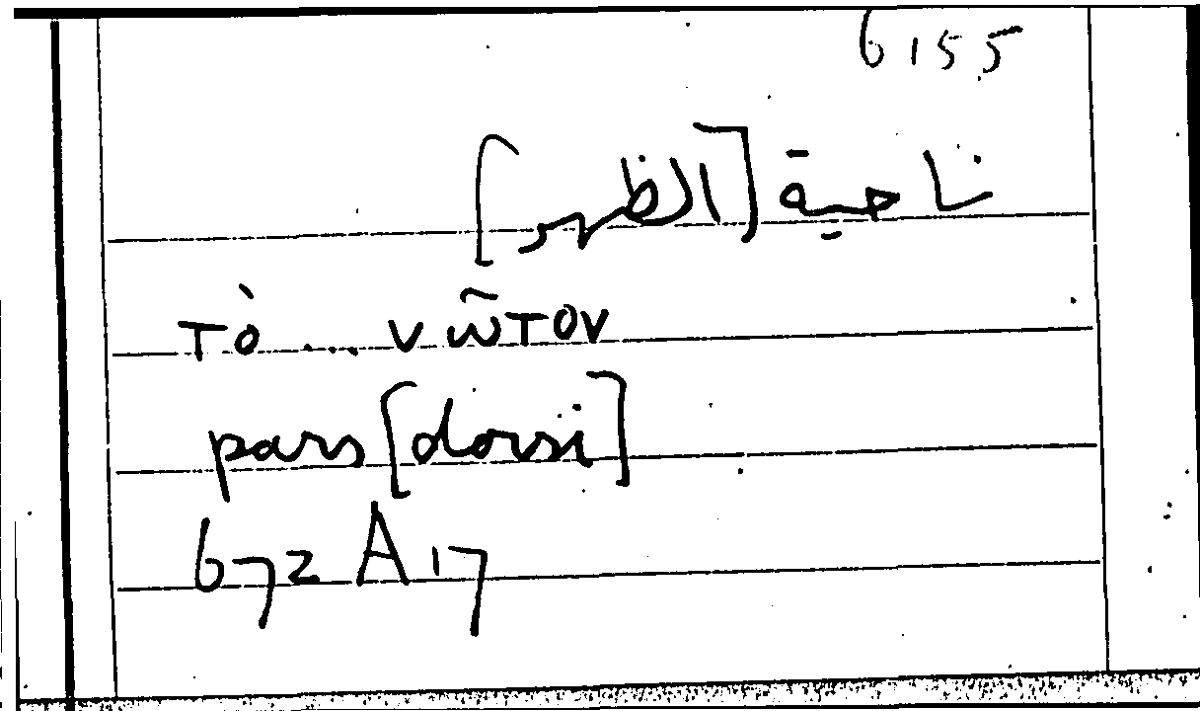 6155
ناحية [الظهر]
τὸ ... νῶτον
pars [dorsi]
672 A 17